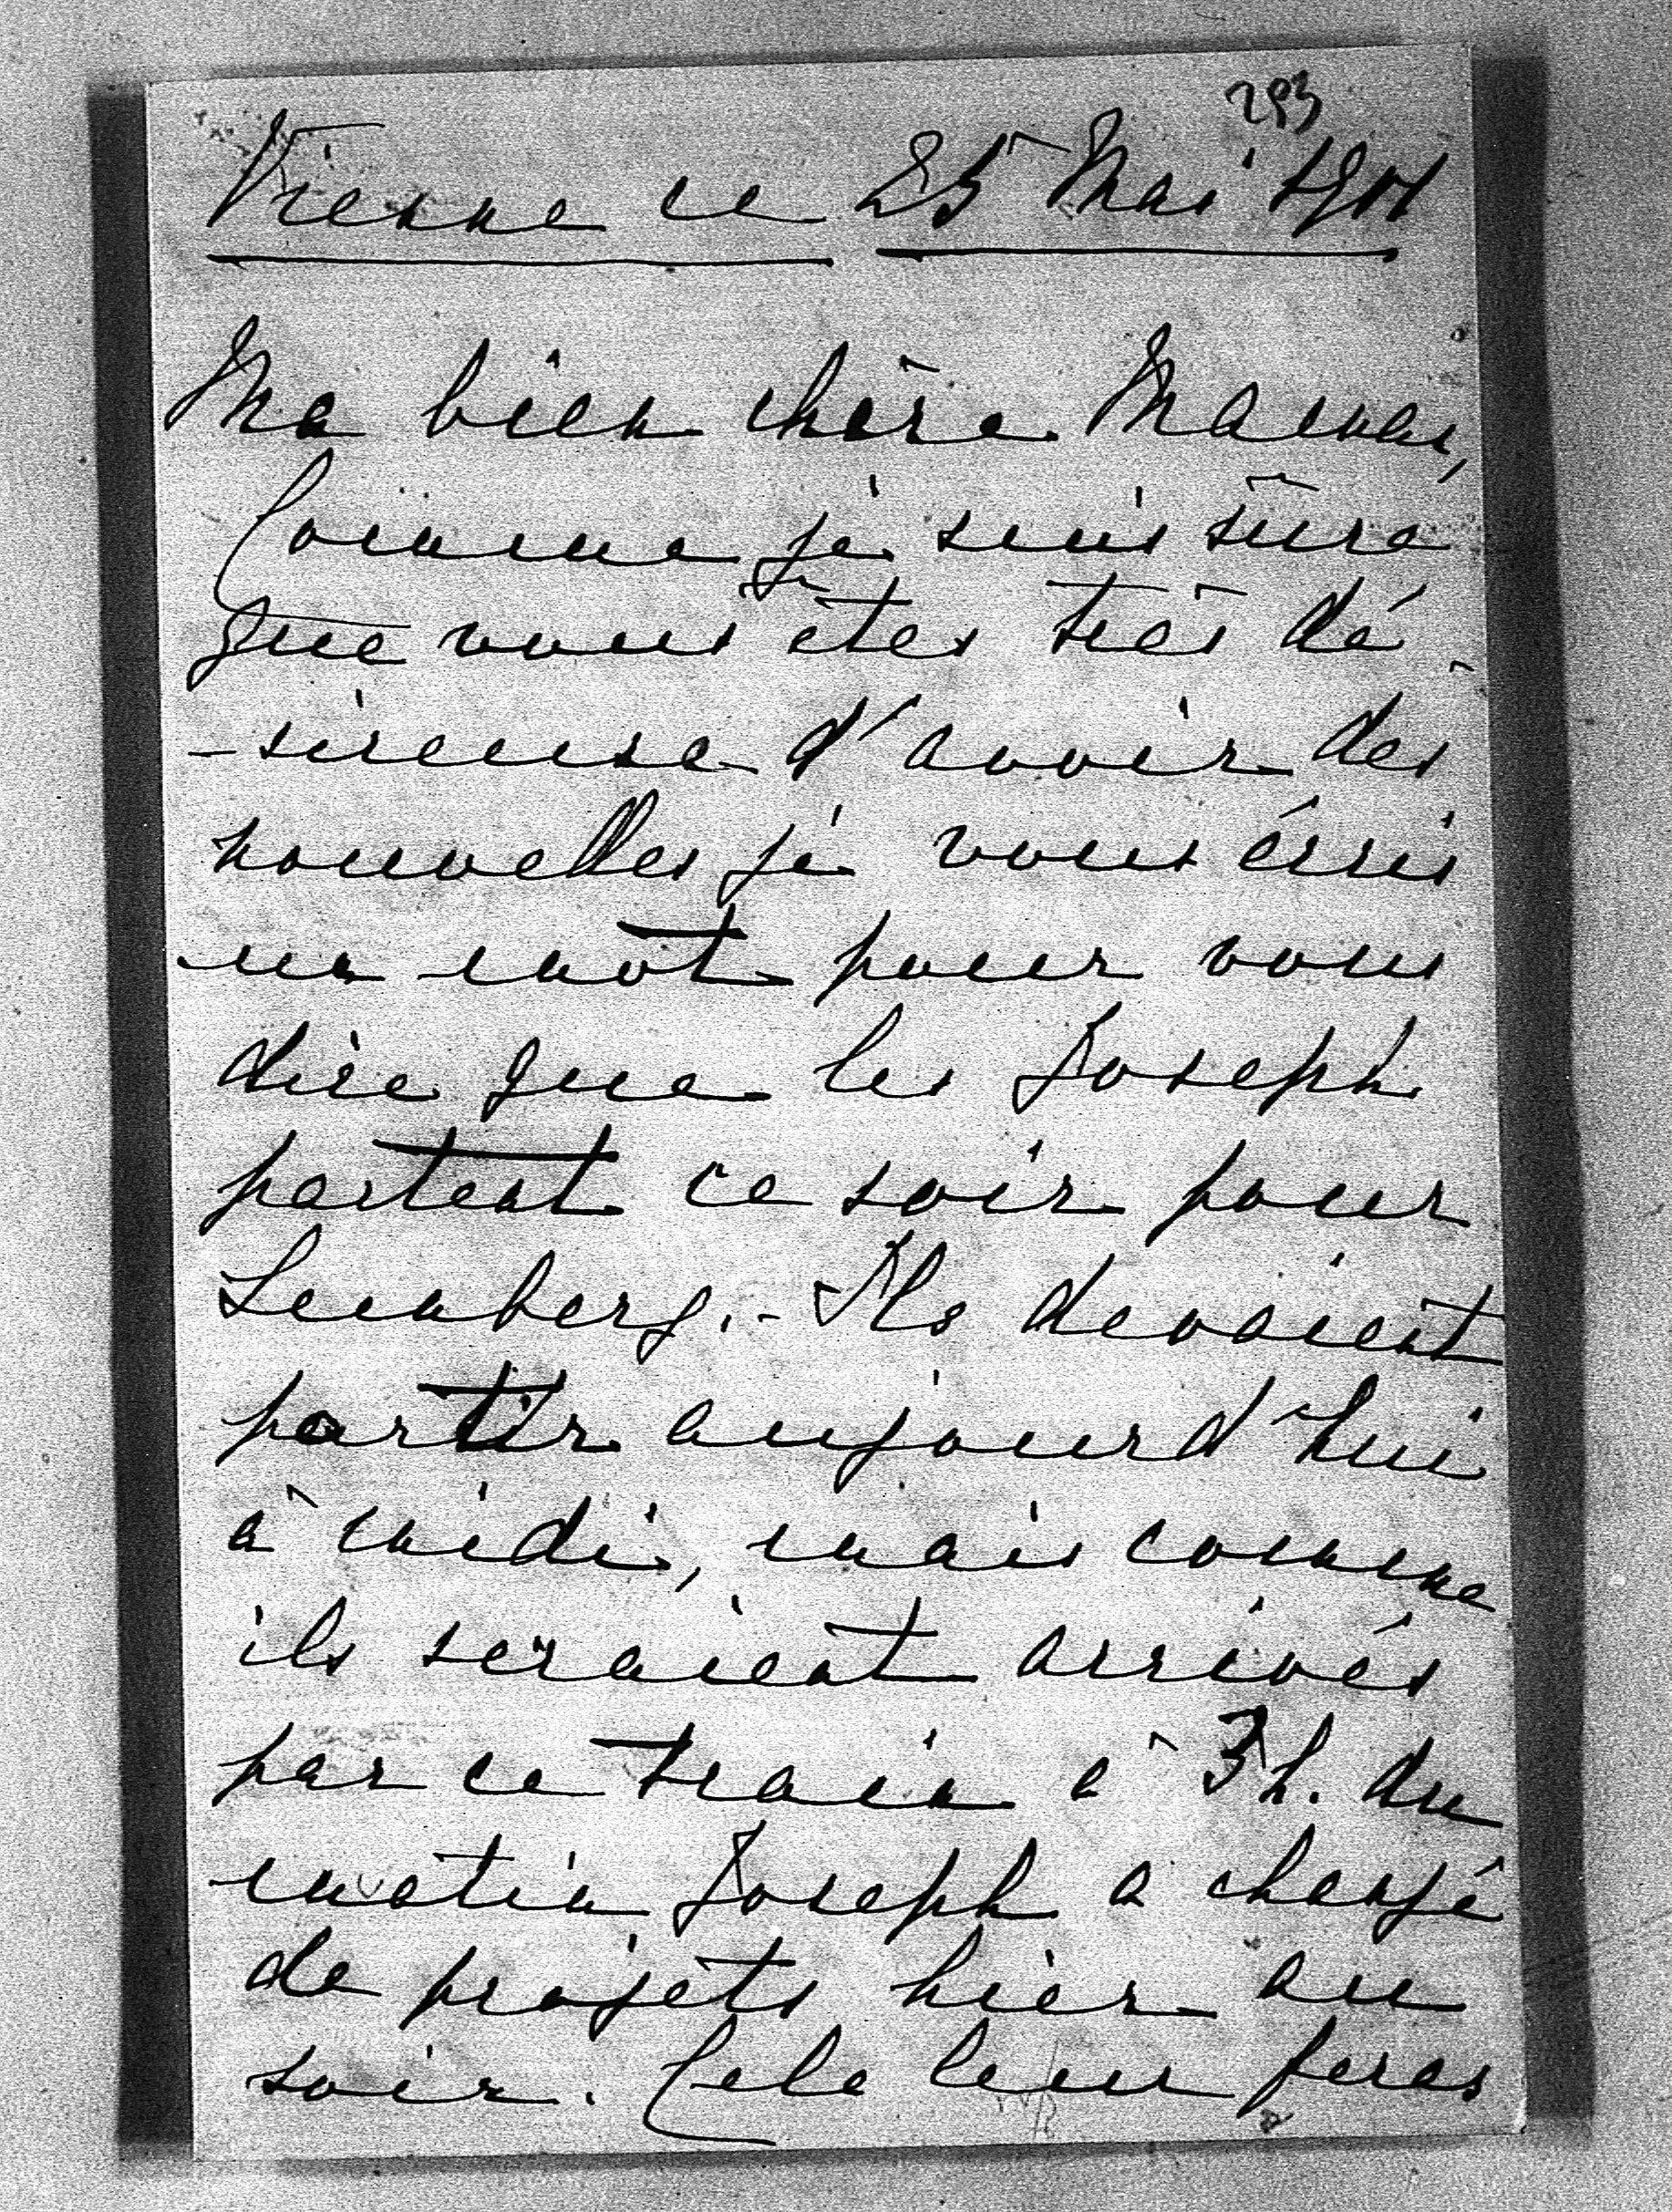 293
Vienne ce 25 Mai 1901
Ma bien chère Maman,
Comme je suis sûre
que vous êtes très dé
-sireuse d'avoir des
nouvelles je vous écris
un mot pour vous
dire que les Joseph
partent ce soir pour
Lemberg.- Ils devaient
partir aujourd'hui
à midi, mais comme
ils seraient arrivés
par ce train à 3h. du
matin Joseph a changé
de projets hier au
soir. Cela leur feras